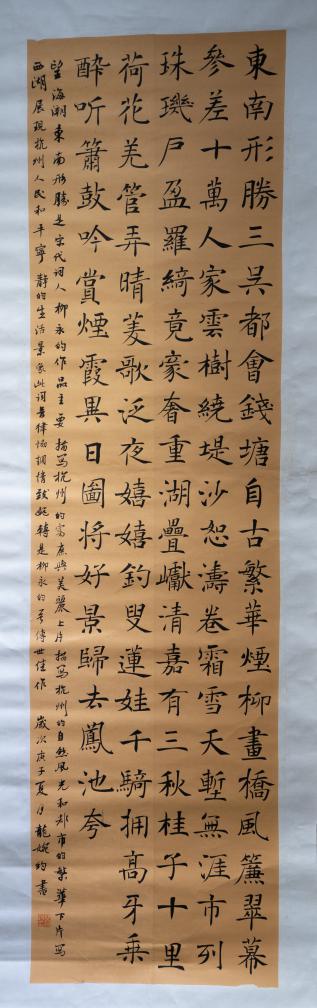 東南形勝三吳都會錢塘自古繁華煙柳畫橋風簾翠幕
參差十萬人家雲樹繞堤沙恕濤卷霜雪天塹無涯市列
珠璣戶盈羅綺竟豪奢重湖疊巘清嘉有三秋桂子十里
荷花羌管弄晴菱歌泛夜嬉嬉釣叟蓮娃千騎拥高牙乗
醉听簫鼓吟賞煙霞異日圖將好景歸去鳳池夸
望海潮東南形勝是宋代詞人柳永的作品主要描写杭州的富庶與美麗上片描写杭州的自然風光和都市的繁華下片写
西湖展現杭州人民和平寧靜的生活景象此詞音律協調情致婉轉是柳永的首傳世佳作 歲次庚子夏月龍婉均書